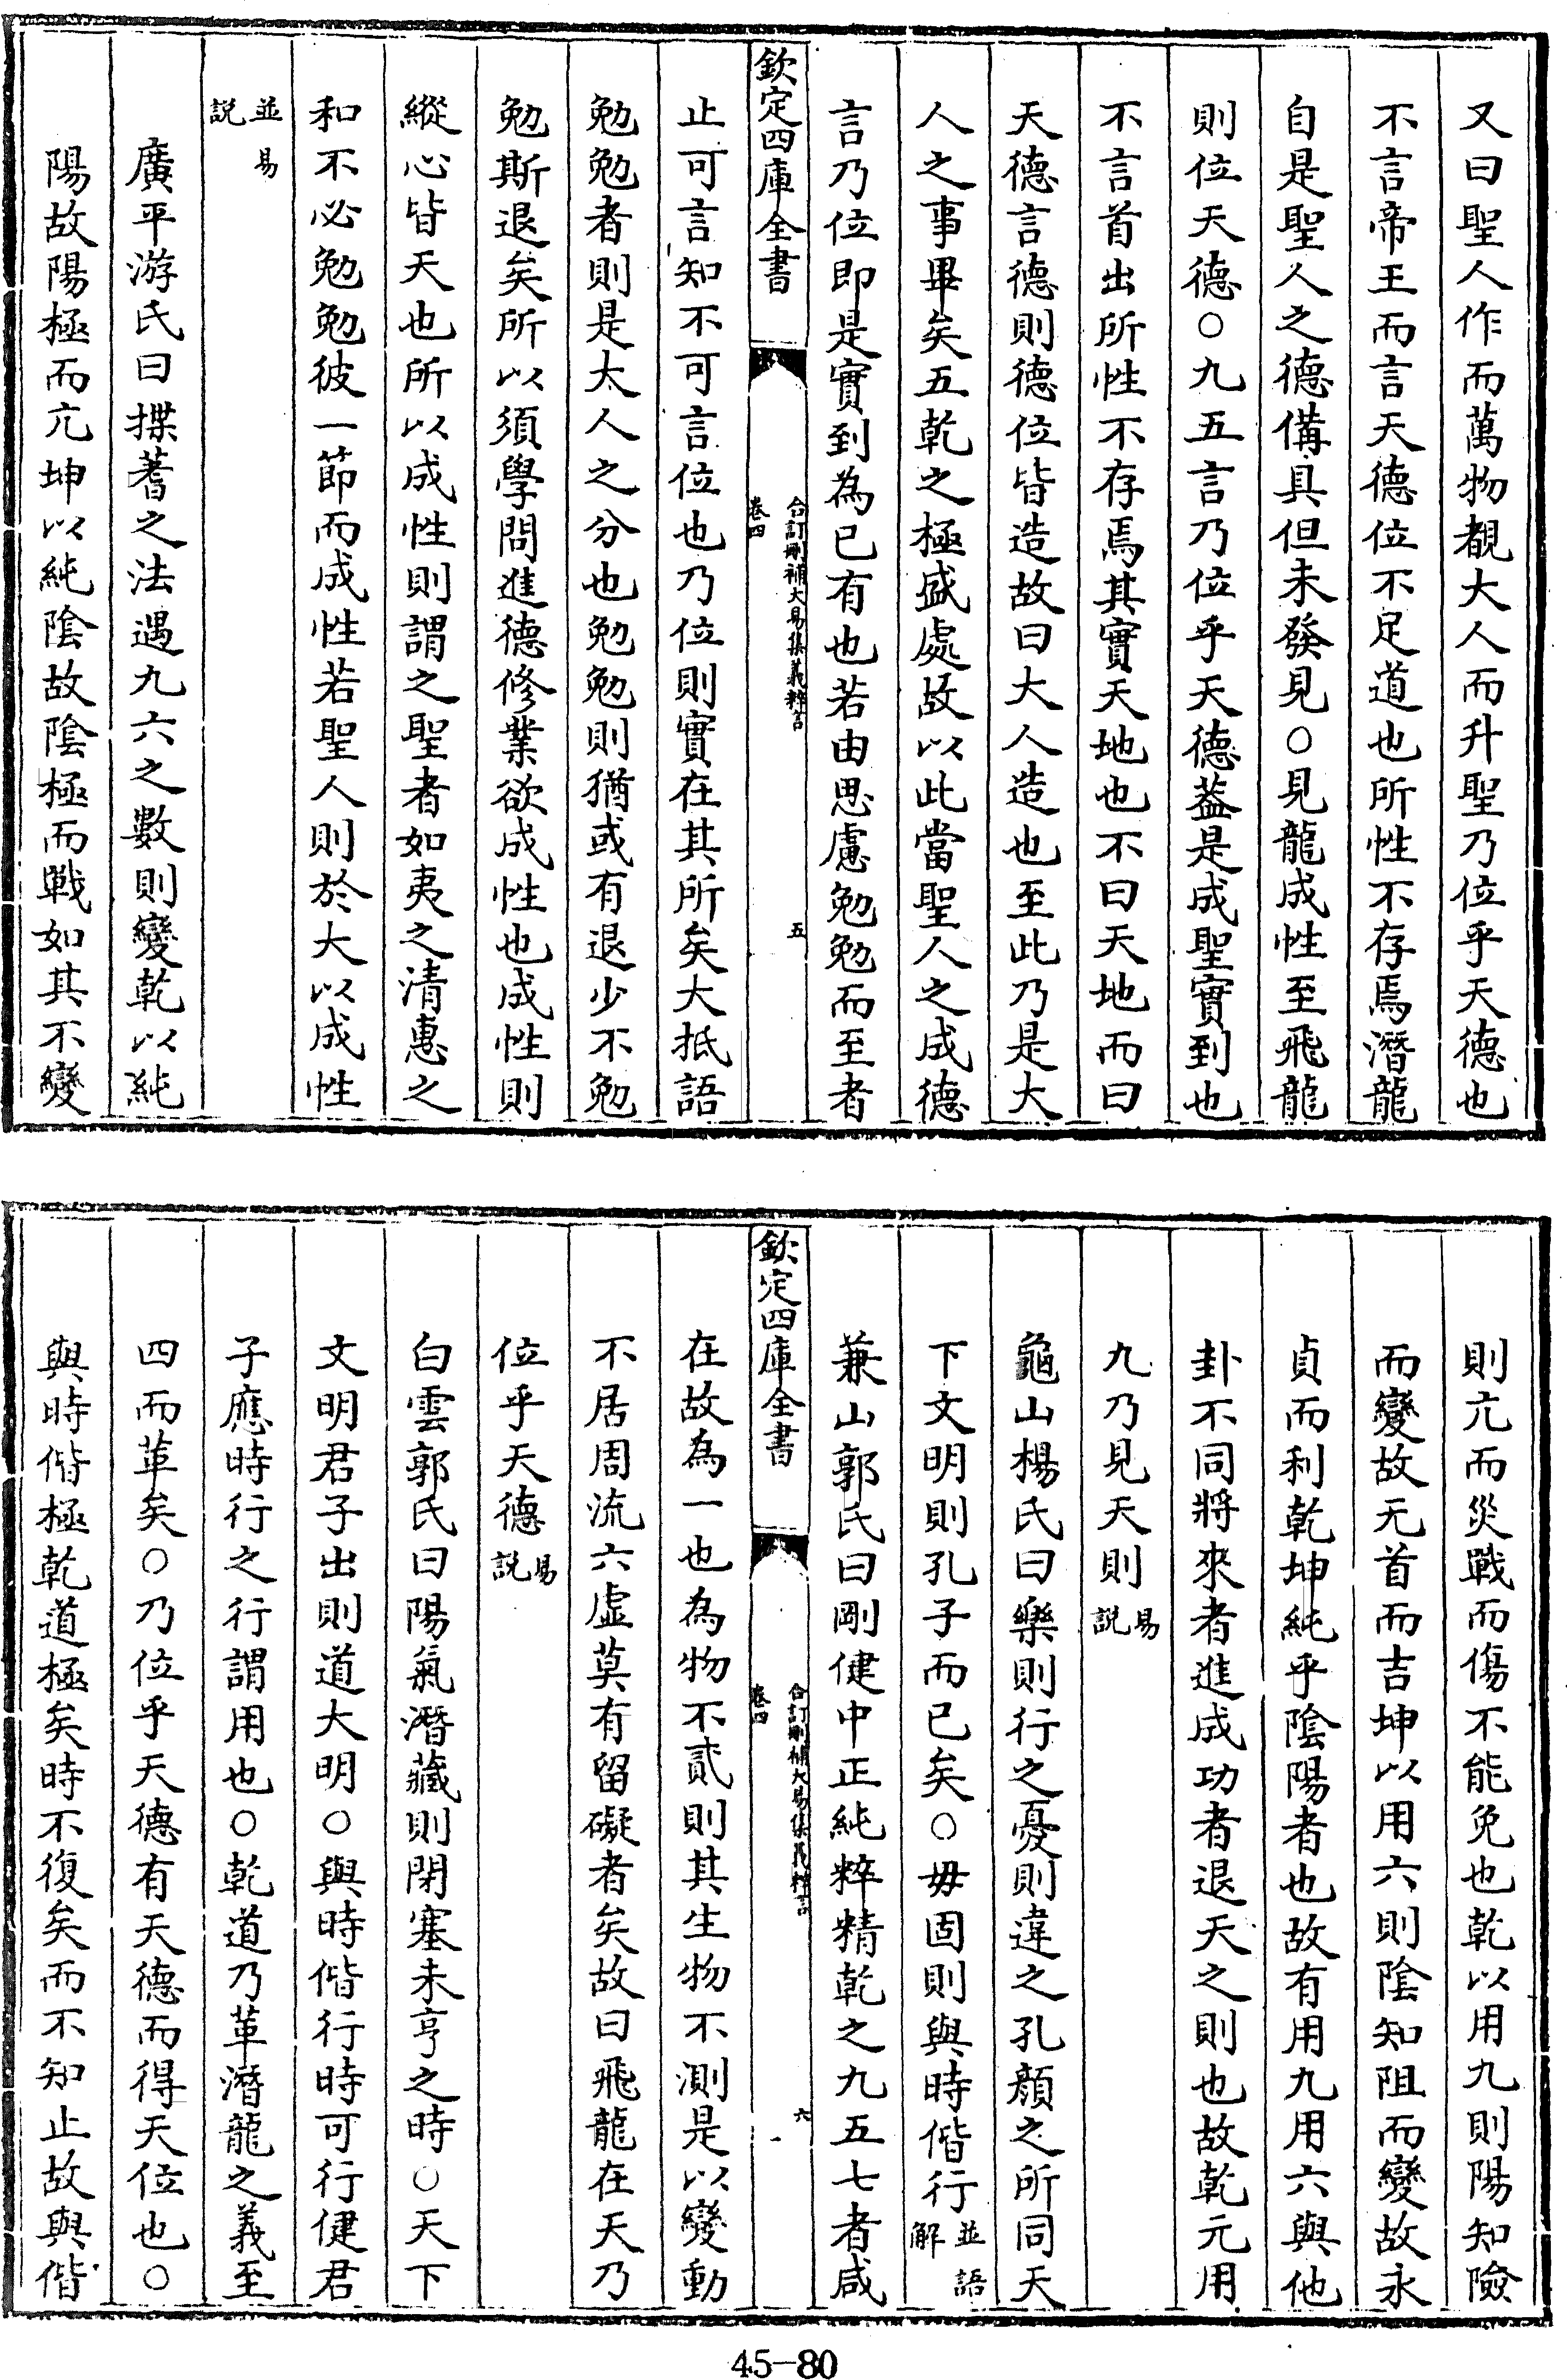 又曰聖人作而萬物覩大人而升聖乃位乎天德也
不言帝王而言天德位不足道也所性不存焉潛龍
自是聖人之德備具但未發見○見龍成性至飛龍
則位天德○九五言乃位乎天德葢是成聖實到也
不言首出所性不存焉其實天地也不曰天地而曰
天德言德則德位皆造故曰大人造也至此乃是大
人之事畢矣五乾之極盛處故以此當聖人之成德
言乃位即是實到為已有也若由思慮勉勉而至者
欽定四庫全書
合訂刪補大易集義粹言
卷四
五
止可言知不可言位也乃位則實在其所矣大抵語
勉勉者則是大人之分也勉勉則猶或有退少不勉
勉斯退矣所以須學問進德修業欲成性也成性則
縱心皆天也所以成性則謂之聖者如夷之清惠之
和不必勉勉彼一節而成性若聖人則於大以成性
並易
説
廣平游氏曰揲蓍之法遇九六之數則變乾以純
陽故陽極而亢坤以純陰故陰極而戰如其不變
則亢而災戰而傷不能免也乾以用九則陽知險
而變故无首而吉坤以用六則陰知阻而變故永
貞而利乾坤純乎陰陽者也故有用九用六與他
卦不同將來者進成功者退天之則也故乾元用
九乃見天則易說
龜山楊氏曰樂則行之憂則違之孔顔之所同天
下文明則孔子而已矣○毋固則與時偕行並語解
兼山郭氏曰剛健中正純粹精乾之九五七者咸
欽定四庫全書
合訂刪補大易集義粹言
卷四
六
在故為一也為物不貳則其生物不測是以變動
不居周流六虛莫有留礙者矣故曰飛龍在天乃
位乎天德易説
白雲郭氏曰陽氣潛藏則閉塞未亨之時○天下
文明君子出則道大明○與時偕行時可行健君
子應時行之行謂用也○乾道乃革潛龍之義至
四而革矣○乃位乎天德有天德而得天位也○
與時偕極乾道極矣時不復矣而不知止故與偕
45-80